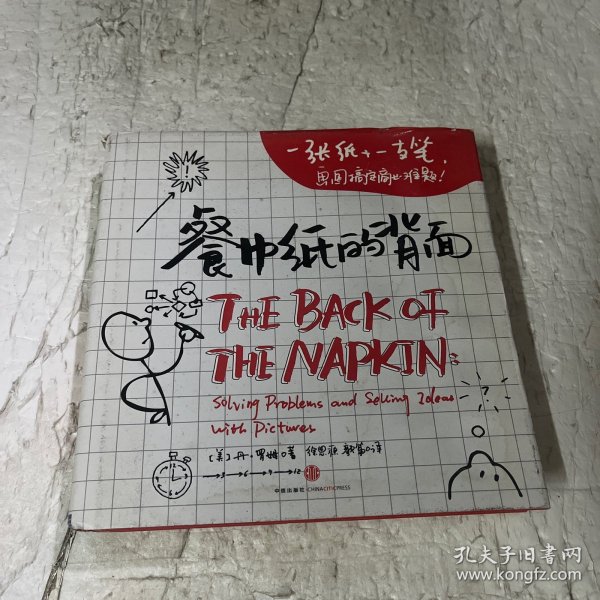 一张纸+一支笔,
画图搞定商业难题!
餐巾纸的背面
THE BACK OF
THE NAPKIN:
Solving Problems and Selling Ideas
with Pictures
?
[美]丹·罗姆◎著 徐思源 颜筝◎译
3 6 9 12
中信出版社·CHINACITICPRESS
孔夫子旧书网
www.kongfz.com